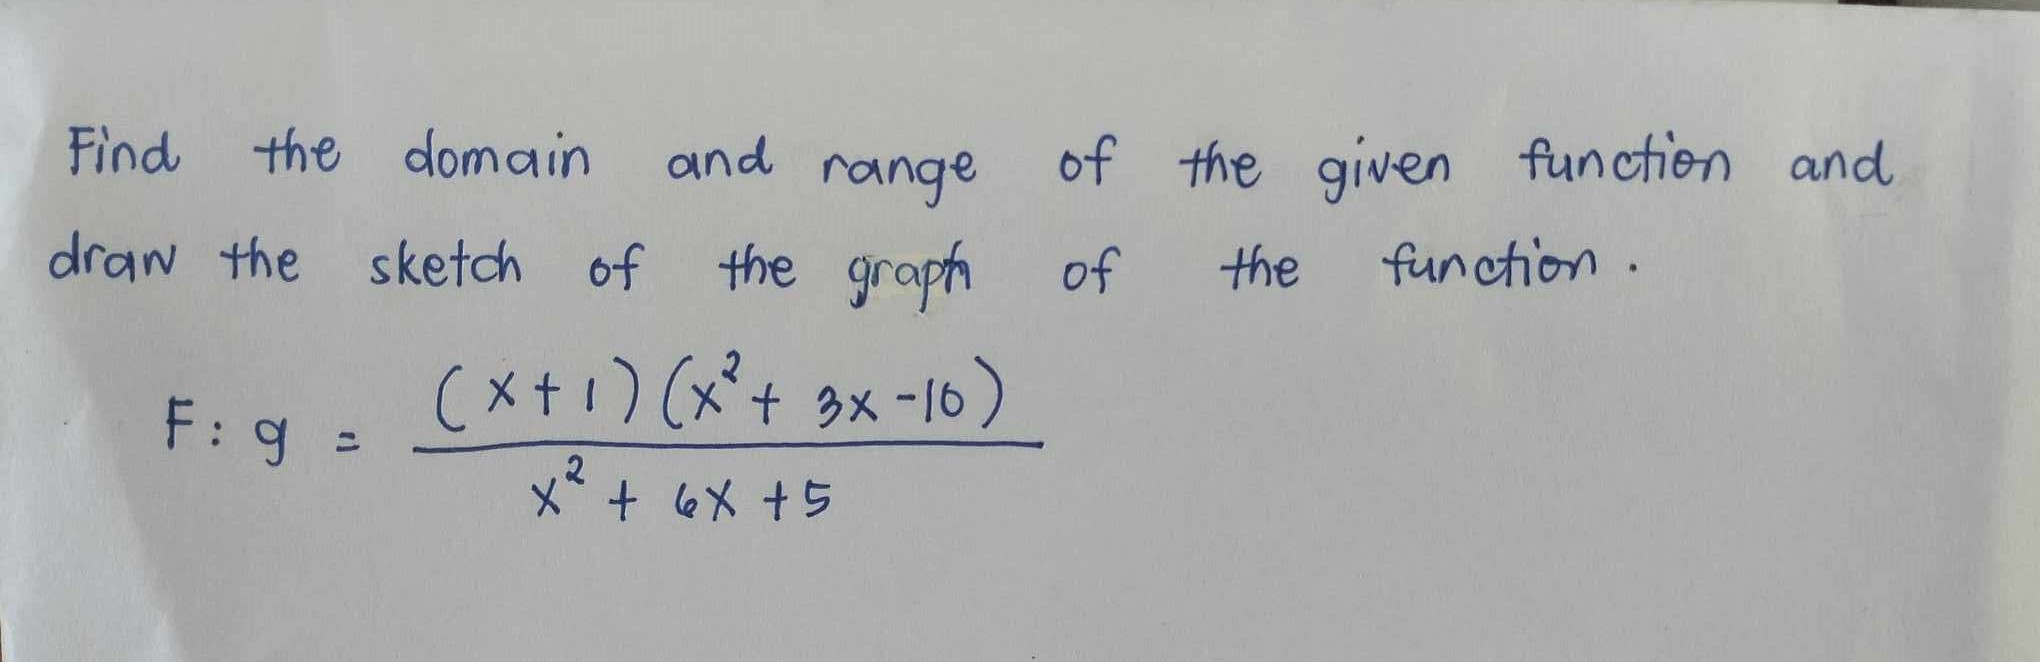 Find the domain and range of the given function and
draw the sketch of the graph of the function.
F: g = (x+1)(x²+ 3x-10)
x² + 6x +5